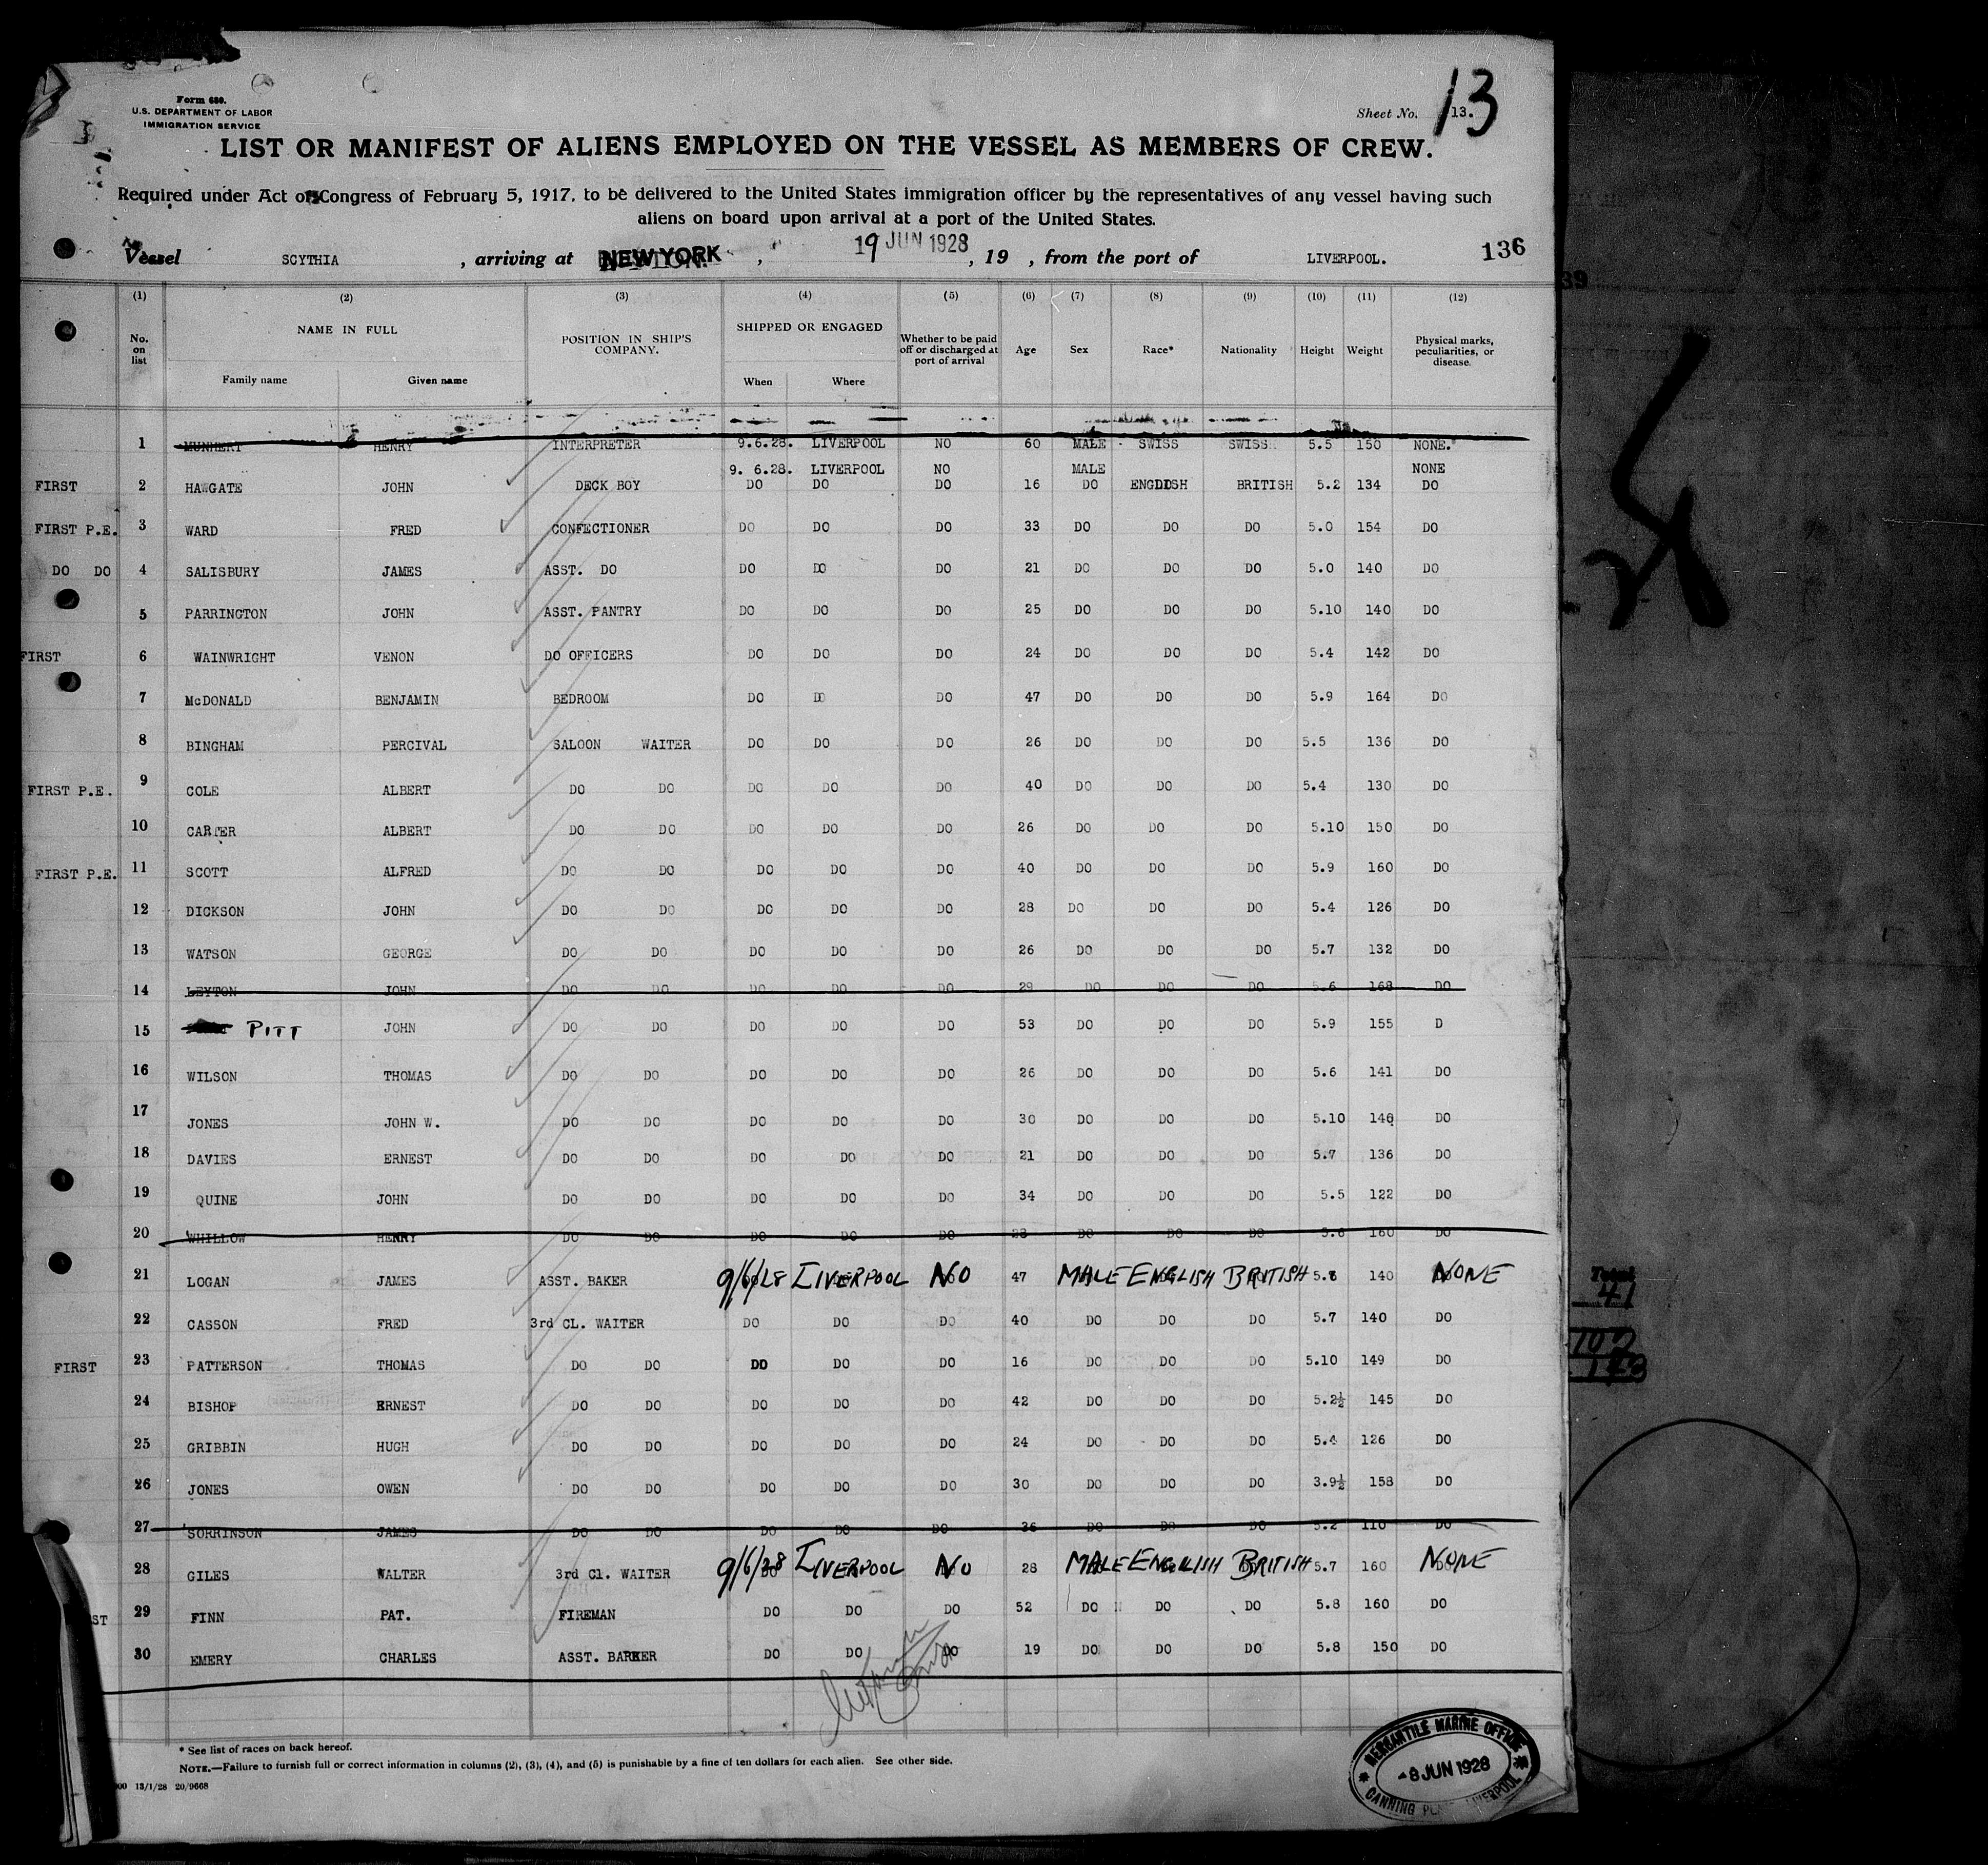 Form 680.
U.S. DEPARTMENT OF LABOR
IMMIGRATION SERVICE
Sheet No. 13. 13
LIST OR MANIFEST OF ALIENS EMPLOYED ON THE VESSEL AS MEMBERS OF CREW.
Required under Act of Congress of February 5, 1917, to be delivered to the United States immigration officer by the representatives of any vessel having such
aliens on board upon arrival at a port of the United States.
Vessel SCYTHIA , arriving at NEW YORK , 19 JUN 1928 , 19 , from the port of LIVERPOOL. 136
(1) (2) (3) (4) (5) (6) (7) (8) (9) (10) (11) (12)
No. on list NAME IN FULL POSITION IN SHIP'S COMPANY. SHIPPED OR ENGAGED Whether to be paid off or discharged at port of arrival Age Sex Race* Nationality Height Weight Physical marks, peculiarities, or disease.
Family name Given name When Where
1 MUNHERT HENRY INTERPRETER 9.6.28. LIVERPOOL NO 60 MALE SWISS SWISS 5.5 150 NONE.
9. 6.28. LIVERPOOL NO MALE NONE
FIRST 2 HAWGATE JOHN DECK BOY DO DO DO 16 DO ENGLISH BRITISH 5.2 134 DO
FIRST P.E. 3 WARD FRED CONFECTIONER DO DO DO 33 DO DO DO 5.0 154 DO
DO DO 4 SALISBURY JAMES ASST. DO DO DO DO 21 DO DO DO 5.0 140 DO
5 PARRINGTON JOHN ASST. PANTRY DO DO DO 25 DO DO DO 5.10 140 DO
FIRST 6 WAINWRIGHT VENON DO OFFICERS DO DO DO 24 DO DO DO 5.4 142 DO
7 McDONALD BENJAMIN BEDROOM DO DO DO 47 DO DO DO 5.9 164 DO
8 BINGHAM PERCIVAL SALOON WAITER DO DO DO 26 DO DO DO 5.5 136 DO
FIRST P.E. 9 COLE ALBERT DO DO DO DO DO 40 DO DO DO 5.4 130 DO
10 CARTER ALBERT DO DO DO DO DO 26 DO DO DO 5.10 150 DO
FIRST P.E. 11 SCOTT ALFRED DO DO DO DO DO 40 DO DO DO 5.9 160 DO
12 DICKSON JOHN DO DO DO DO DO 28 DO DO DO 5.4 126 DO
13 WATSON GEORGE DO DO DO DO DO 26 DO DO DO 5.7 132 DO
14 LEYTON JOHN DO DO DO DO DO 29 DO DO DO 5.6 168 DO
15 PITT JOHN DO DO DO DO DO 53 DO DO DO 5.9 155 D
16 WILSON THOMAS DO DO DO DO DO 26 DO DO DO 5.6 141 DO
17 JONES JOHN W. DO DO DO DO DO 30 DO DO DO 5.10 140 DO
18 DAVIES ERNEST DO DO DO DO DO 21 DO DO DO 5.7 136 DO
19 QUINE JOHN DO DO DO DO DO 34 DO DO DO 5.5 122 DO
20 WHILLOW HENRY DO DO DO DO DO 23 DO DO DO 5.6 160 DO
21 LOGAN JAMES ASST. BAKER 9/6/28 LIVERPOOL NO 47 MALE ENGLISH BRITISH 5.8 140 NONE
22 CASSON FRED 3rd CL. WAITER DO DO DO 40 DO DO DO 5.7 140 DO
FIRST 23 PATTERSON THOMAS DO DO DO DO DO 16 DO DO DO 5.10 149 DO
24 BISHOP ERNEST DO DO DO DO DO 42 DO DO DO 5.2½ 145 DO
25 GRIBBIN HUGH DO DO DO DO DO 24 DO DO DO 5.4 126 DO
26 JONES OWEN DO DO DO DO DO 30 DO DO DO 3.9½ 158 DO
27 SORRINSON JAMES DO DO DO DO DO 36 DO DO DO 5.2 110 DO
28 GILES WALTER 3rd Cl. WAITER 9/6/28 LIVERPOOL NO 28 MALE ENGLISH BRITISH 5.7 160 NONE
ST 29 FINN PAT. FIREMAN DO DO DO 52 DO DO DO 5.8 160 DO
30 EMERY CHARLES ASST. BARKER DO DO DO 19 DO DO DO 5.8 150 DO
* See list of races on back hereof.
NOTE.—Failure to furnish full or correct information in columns (2), (3), (4), and (5) is punishable by a fine of ten dollars for each alien. See other side.
00 13/1/28 20/9668
MERCANTILE MARINE OFFICE
8 JUN 1928
CANNING LIVERPOOL
39
Total
41
102
143